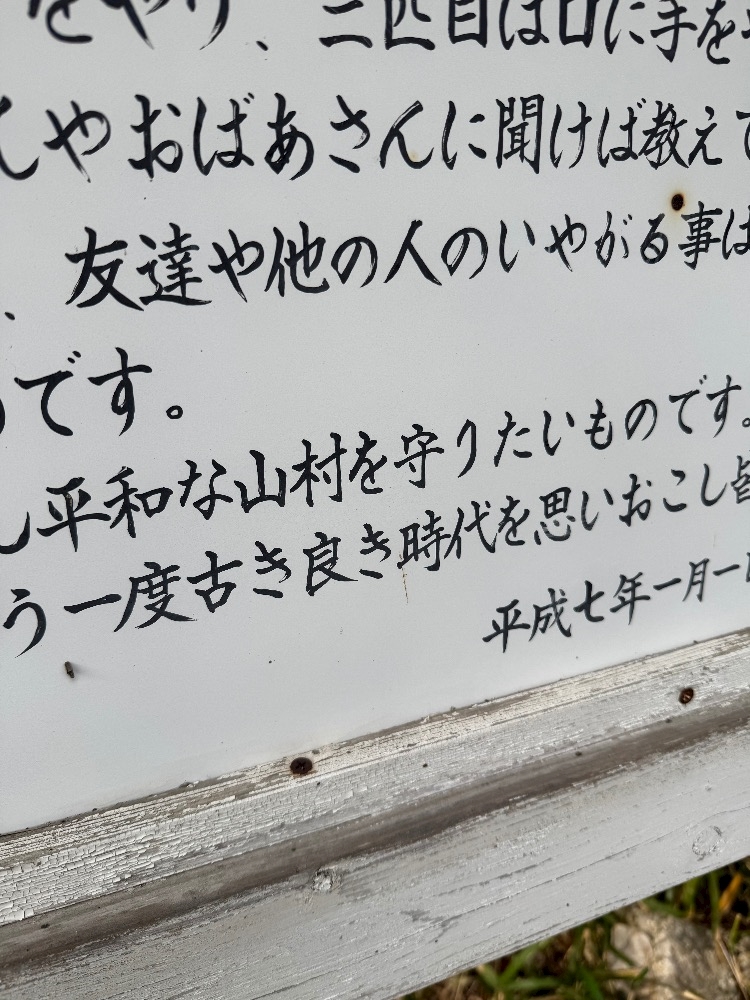 をやり、二匹目は口に手を
しやおばあさんに聞けば教えて
、友達や他の人のいやがる事は
のです。
し平和な山村を守りたいものです。
う一度古き良き時代を思いおこし皆
平成七年一月一日